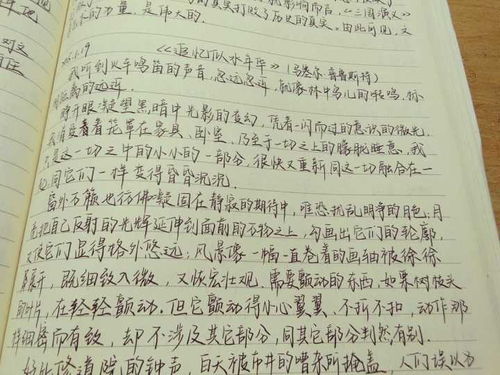 真实打败了历史的真实。由此可见,文
的力量,是伟大的。
《追忆似水年华》(马塞尔·普鲁斯特)
我听到火车鸣笛的声音,忽远忽近,就像林中鸟儿的啭鸣,标
距离的远近。
睁开眼凝望黑暗中光影的变幻,凭着一闪而过的意识的微光,
着笼罩在家具、卧室、乃至于一切之上的朦胧睡意,我
是这一切之中的小小的一部分,很快又重新同这一切融合在一
起,同它们一样变得昏昏沉沉。
窗外万籁也彷佛凝固在静寂的期待中,唯恐扰乱明净的月色;月
把自己反射的光辉延伸到面前的万物之上,勾画出它们的轮廓,
又使它们显得格外悠远;风景像一幅一直卷着的画轴被徐徐
展开,既细致入微,又恢宏壮观。需要颤动的东西,如果树枝头
的叶片,在轻轻颤动。但它颤动得小心翼翼、不折不扣,动作那
样细密而有致,却不涉及其它部分,同其它部分判然有别。
好比修道院的钟声,白天被市井的嘈杂所掩盖,人们误以为